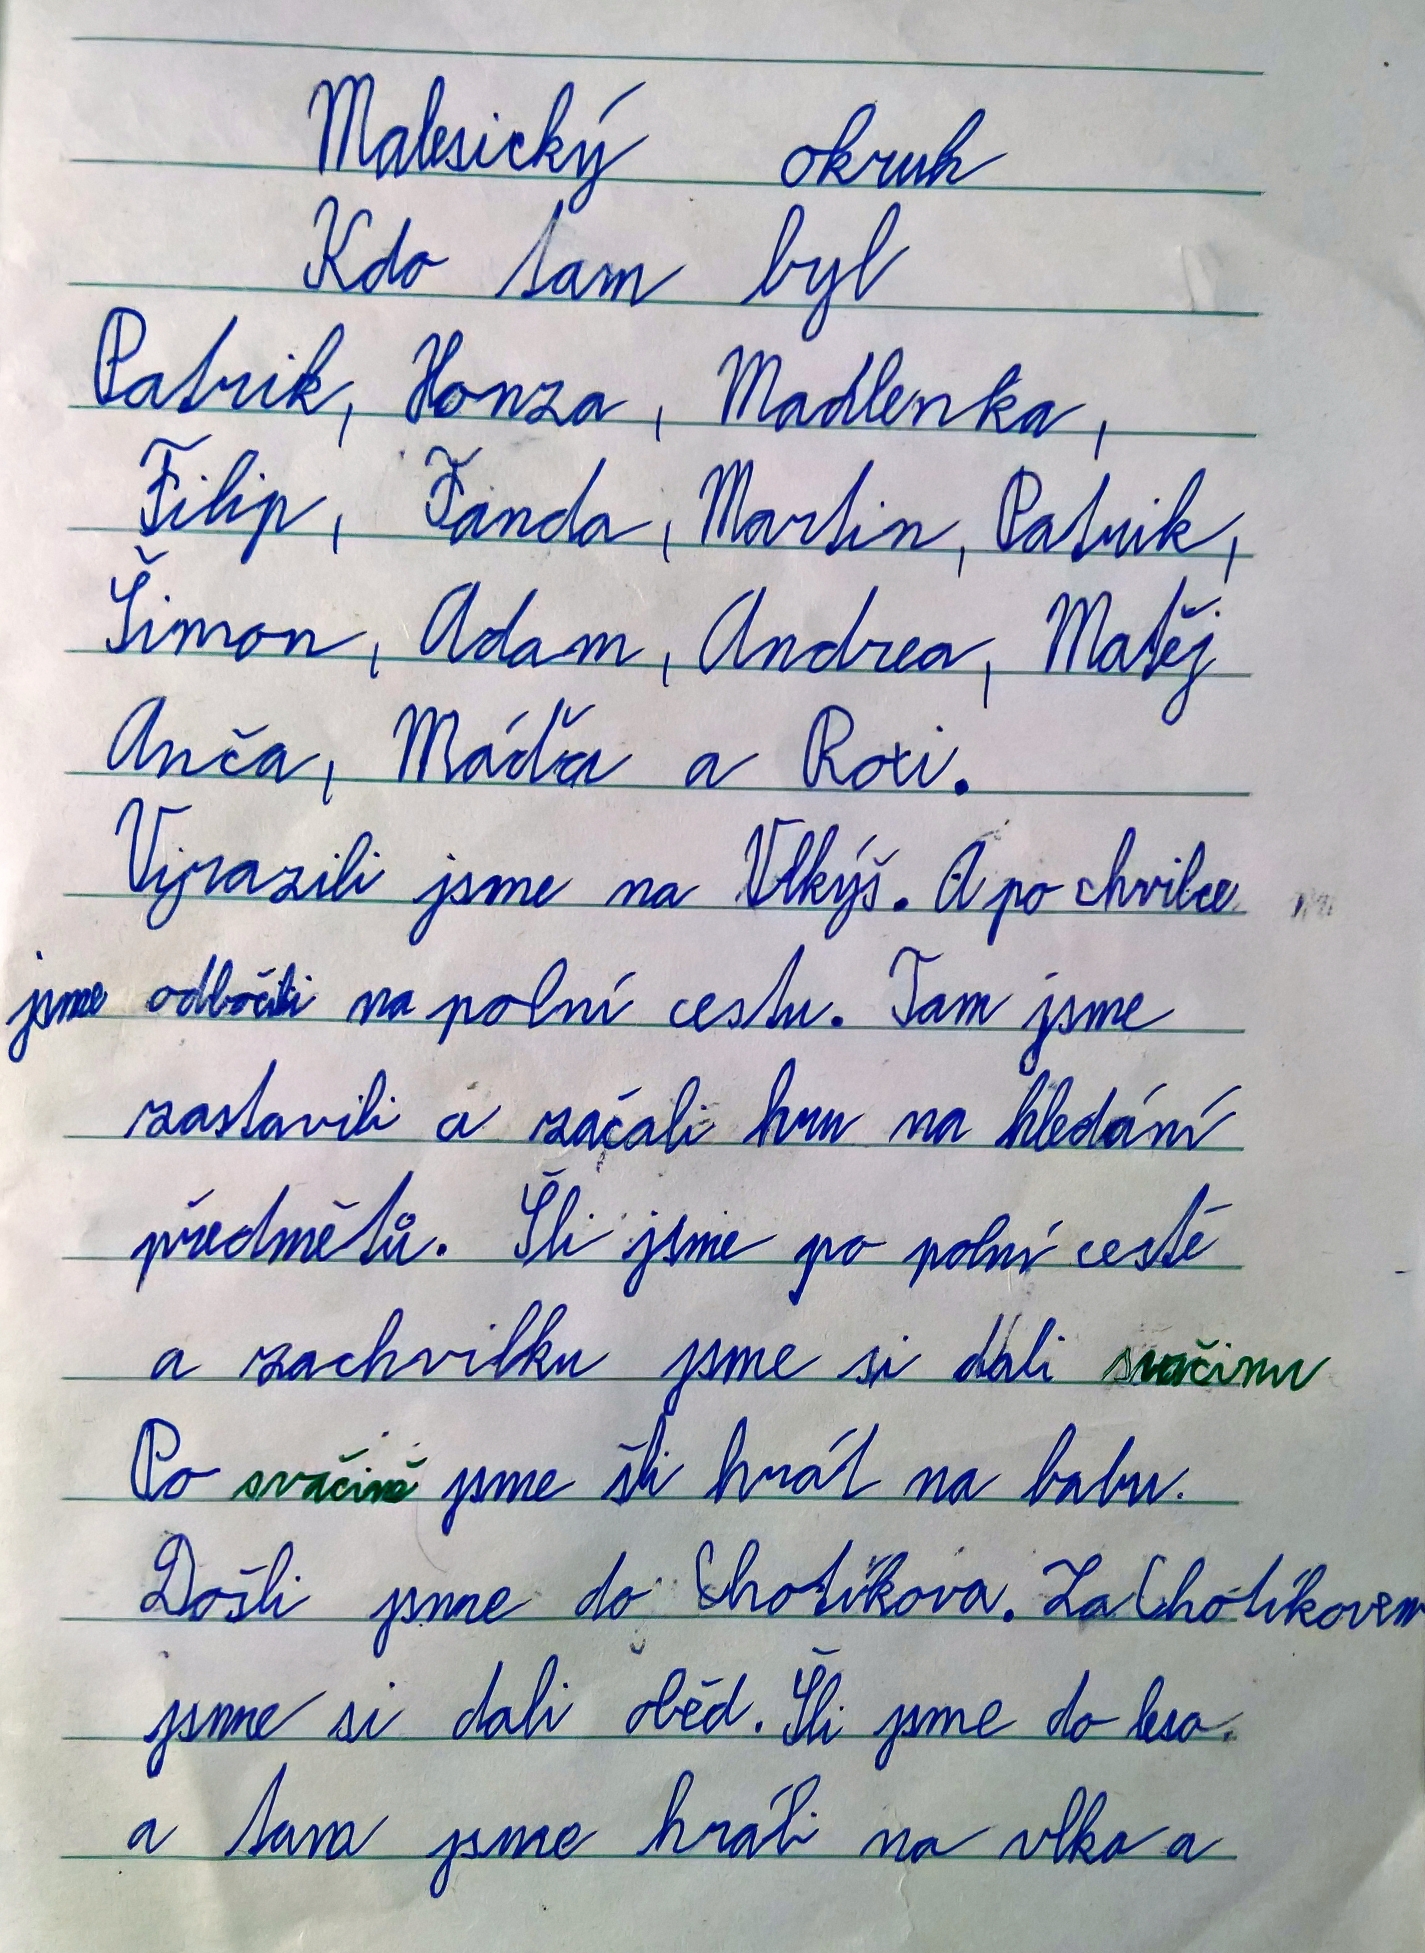 Malesický okruh
Kdo tam byl
Patrik, Honza, Madlenka,
Filip, Fanda, Martin, Patrik,
Šimon, Adam, Andrea, Matěj
Anča, Máďa a Roxi.
Vyrazili jsme na Vlkýš. A po chvilce
jsme odbočili na polní cestu. Tam jsme
zastavili a začali hru na hledání
předmětů. Šli jsme po polní cestě
a zachvilku jsme si dali svačinu
Po svačině jsme šli hrát na babu.
Došli jsme do Chotíkova. Za Chotíkovem
jsme si dali oběd. Šli jsme do lesa.
a tam jsme hráli na vlka a